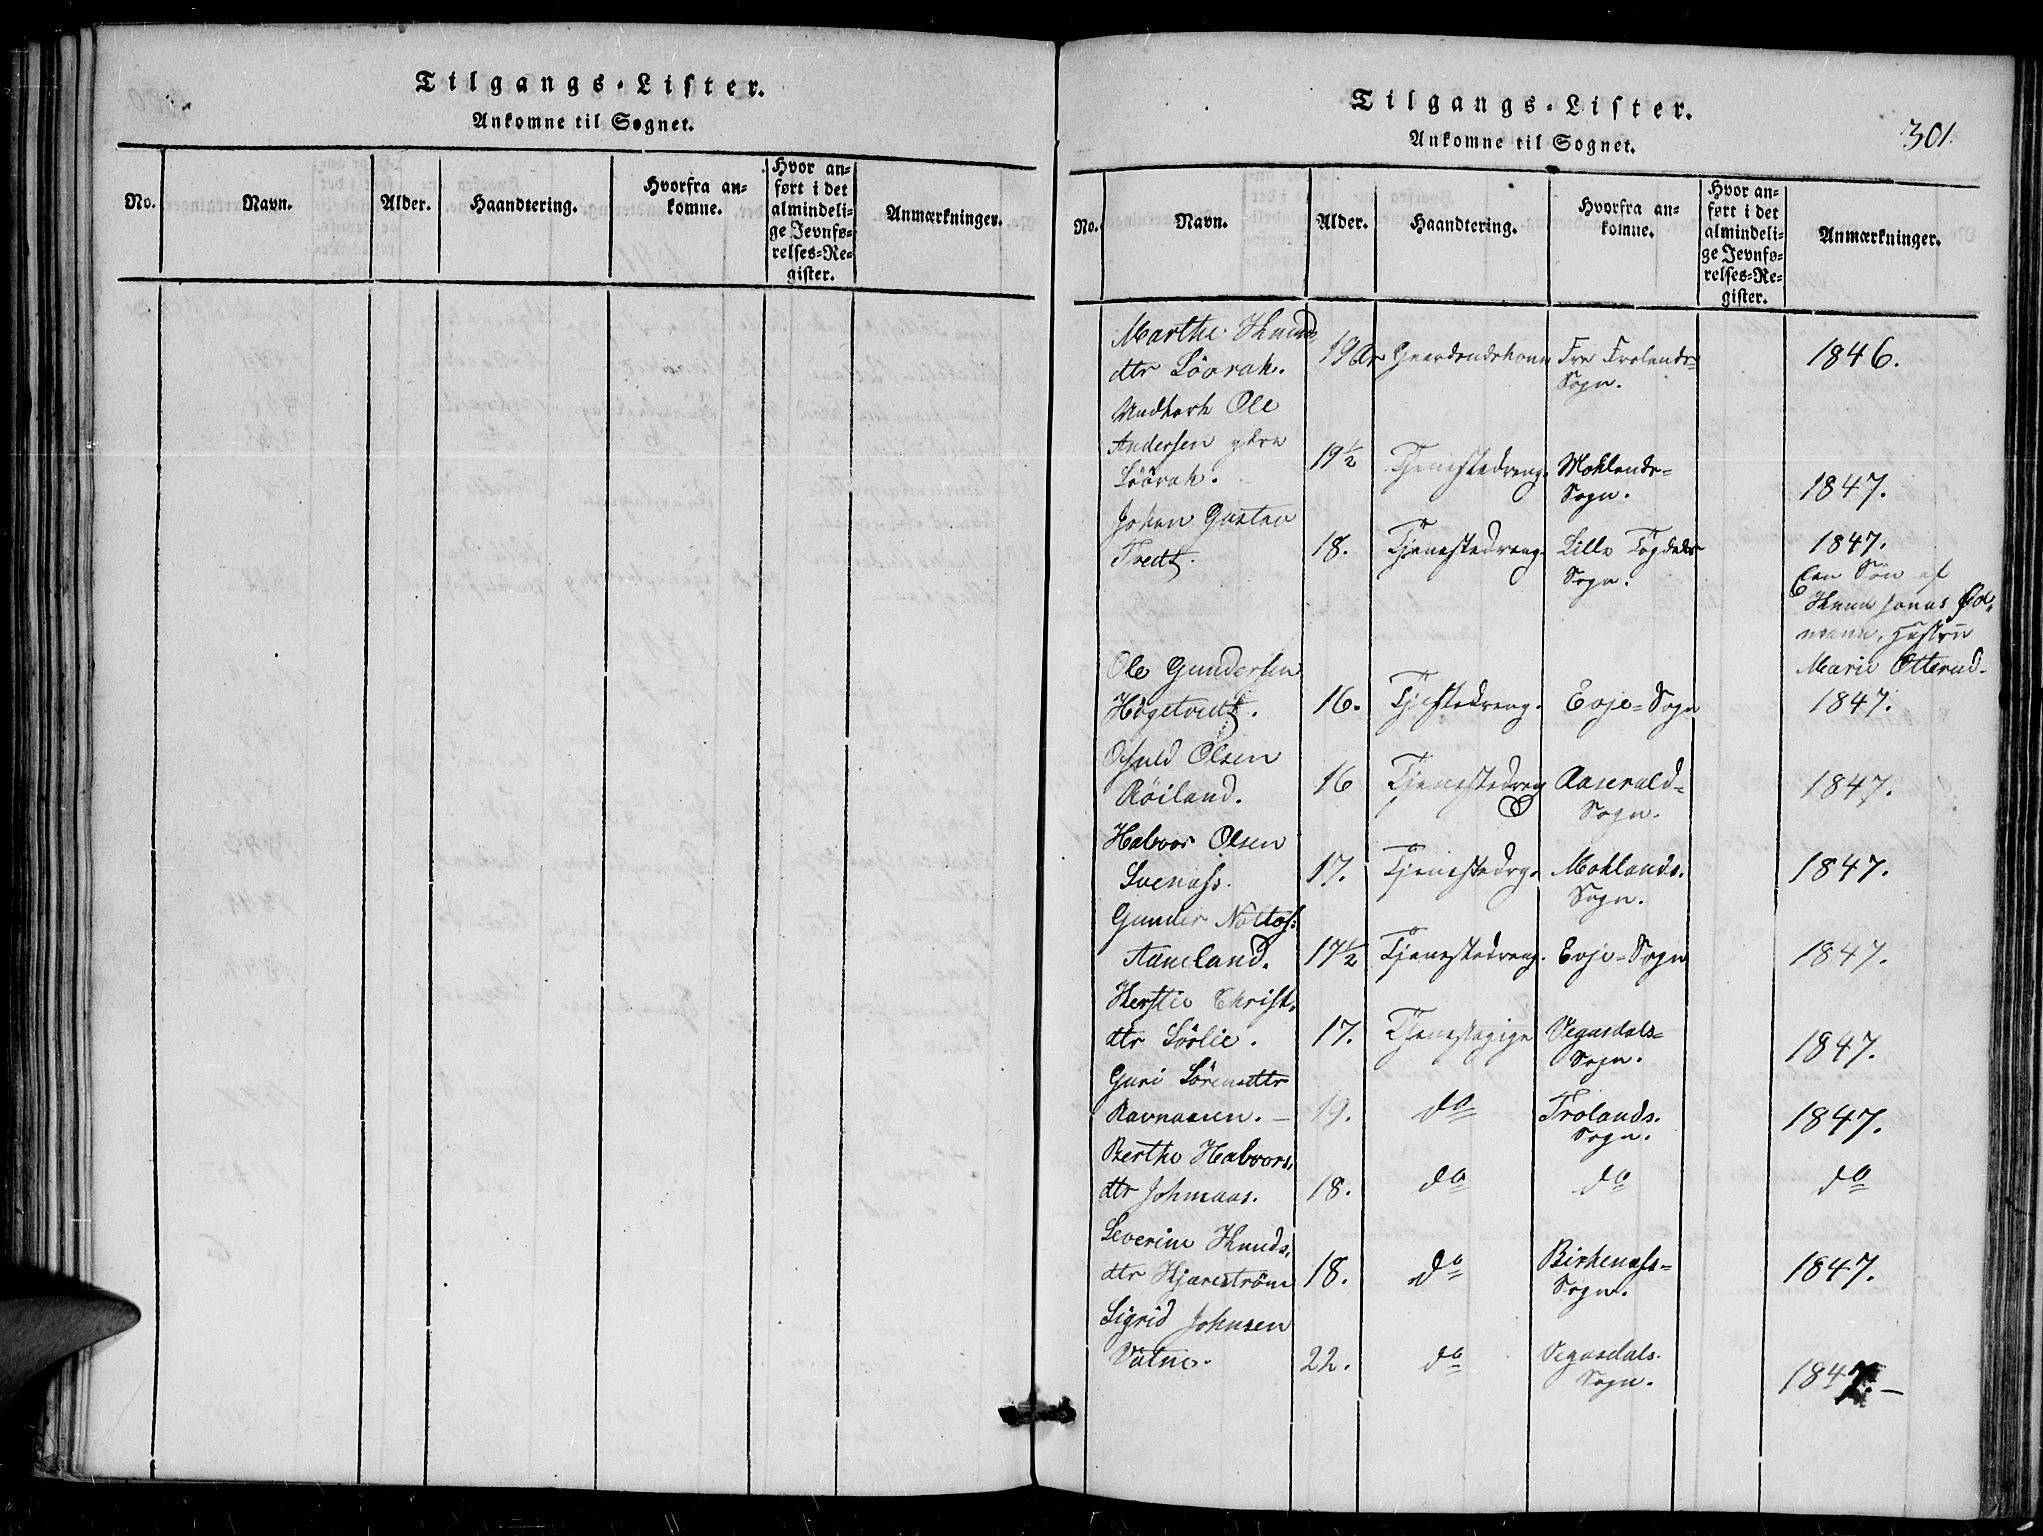 Tilgangs-Lister.
Ankomne til Sognet.
No.
Navn.
Alder.
Haandtering.
Hvorfra an-
komne.
Hvor an-
ført i det
almindeli-
ge Jevnfø-
relses-Re-
gister.
Anmærkninger.
Tilgangs-Lister.
Ankomne til Sognet.
301.
No.
Navn.
Alder.
Haandtering.
Hvorfra an-
komne.
Hvor an-
ført i det
almindeli-
ge Jevnfø-
relses-Re-
gister.
Anmærkninger.
Marthe Knuds
dtr Lövrak.
19 Fra Frolands-
Sogn.
1846.
Ole
Andersen ydre
Löörak.
19½ Tjenestedreng. Moklands-
Sogn.
1847.
Johan Gustav
Tredt.
18. Tjenestedreng. Lille Topdals
Sogn.
1847.
Een Sön af
Knud Jonas
Hustru
Marie Otterud.
Ole Gundersen
Högetvedt.
16. Tjestedreng. Evje-Sogn
1847.
Osuld Olsen
Röiland.
16 Tjenestedreng Aaserald-
Sogn.
1847.
Halvor Olsen
Svenass.
17. Tjenestedrg. Moklands.
Sogn.
1847.
Gunder Noltos:
Aaneland.
17½ Tjenestedreng. Evje-Sogn
1847.
Kerstie Christ.
dtr Sörlie.
17. Tjenestepige Vegusdals-
Sogn.
1847.
Guri Sörensdtr
Ravnaasen.
19. do Frolands.
Sogn.
1847.
Berthe Halvors.
dtr Johmaas.
18. do do do
Severine Knuds.
dtr Kjærestrôm
18. do Birkenass-
Sogn.
1847.
Sigrid Johnsen
Vatne.
22. do Vegusdals.
Sogn.
1847.